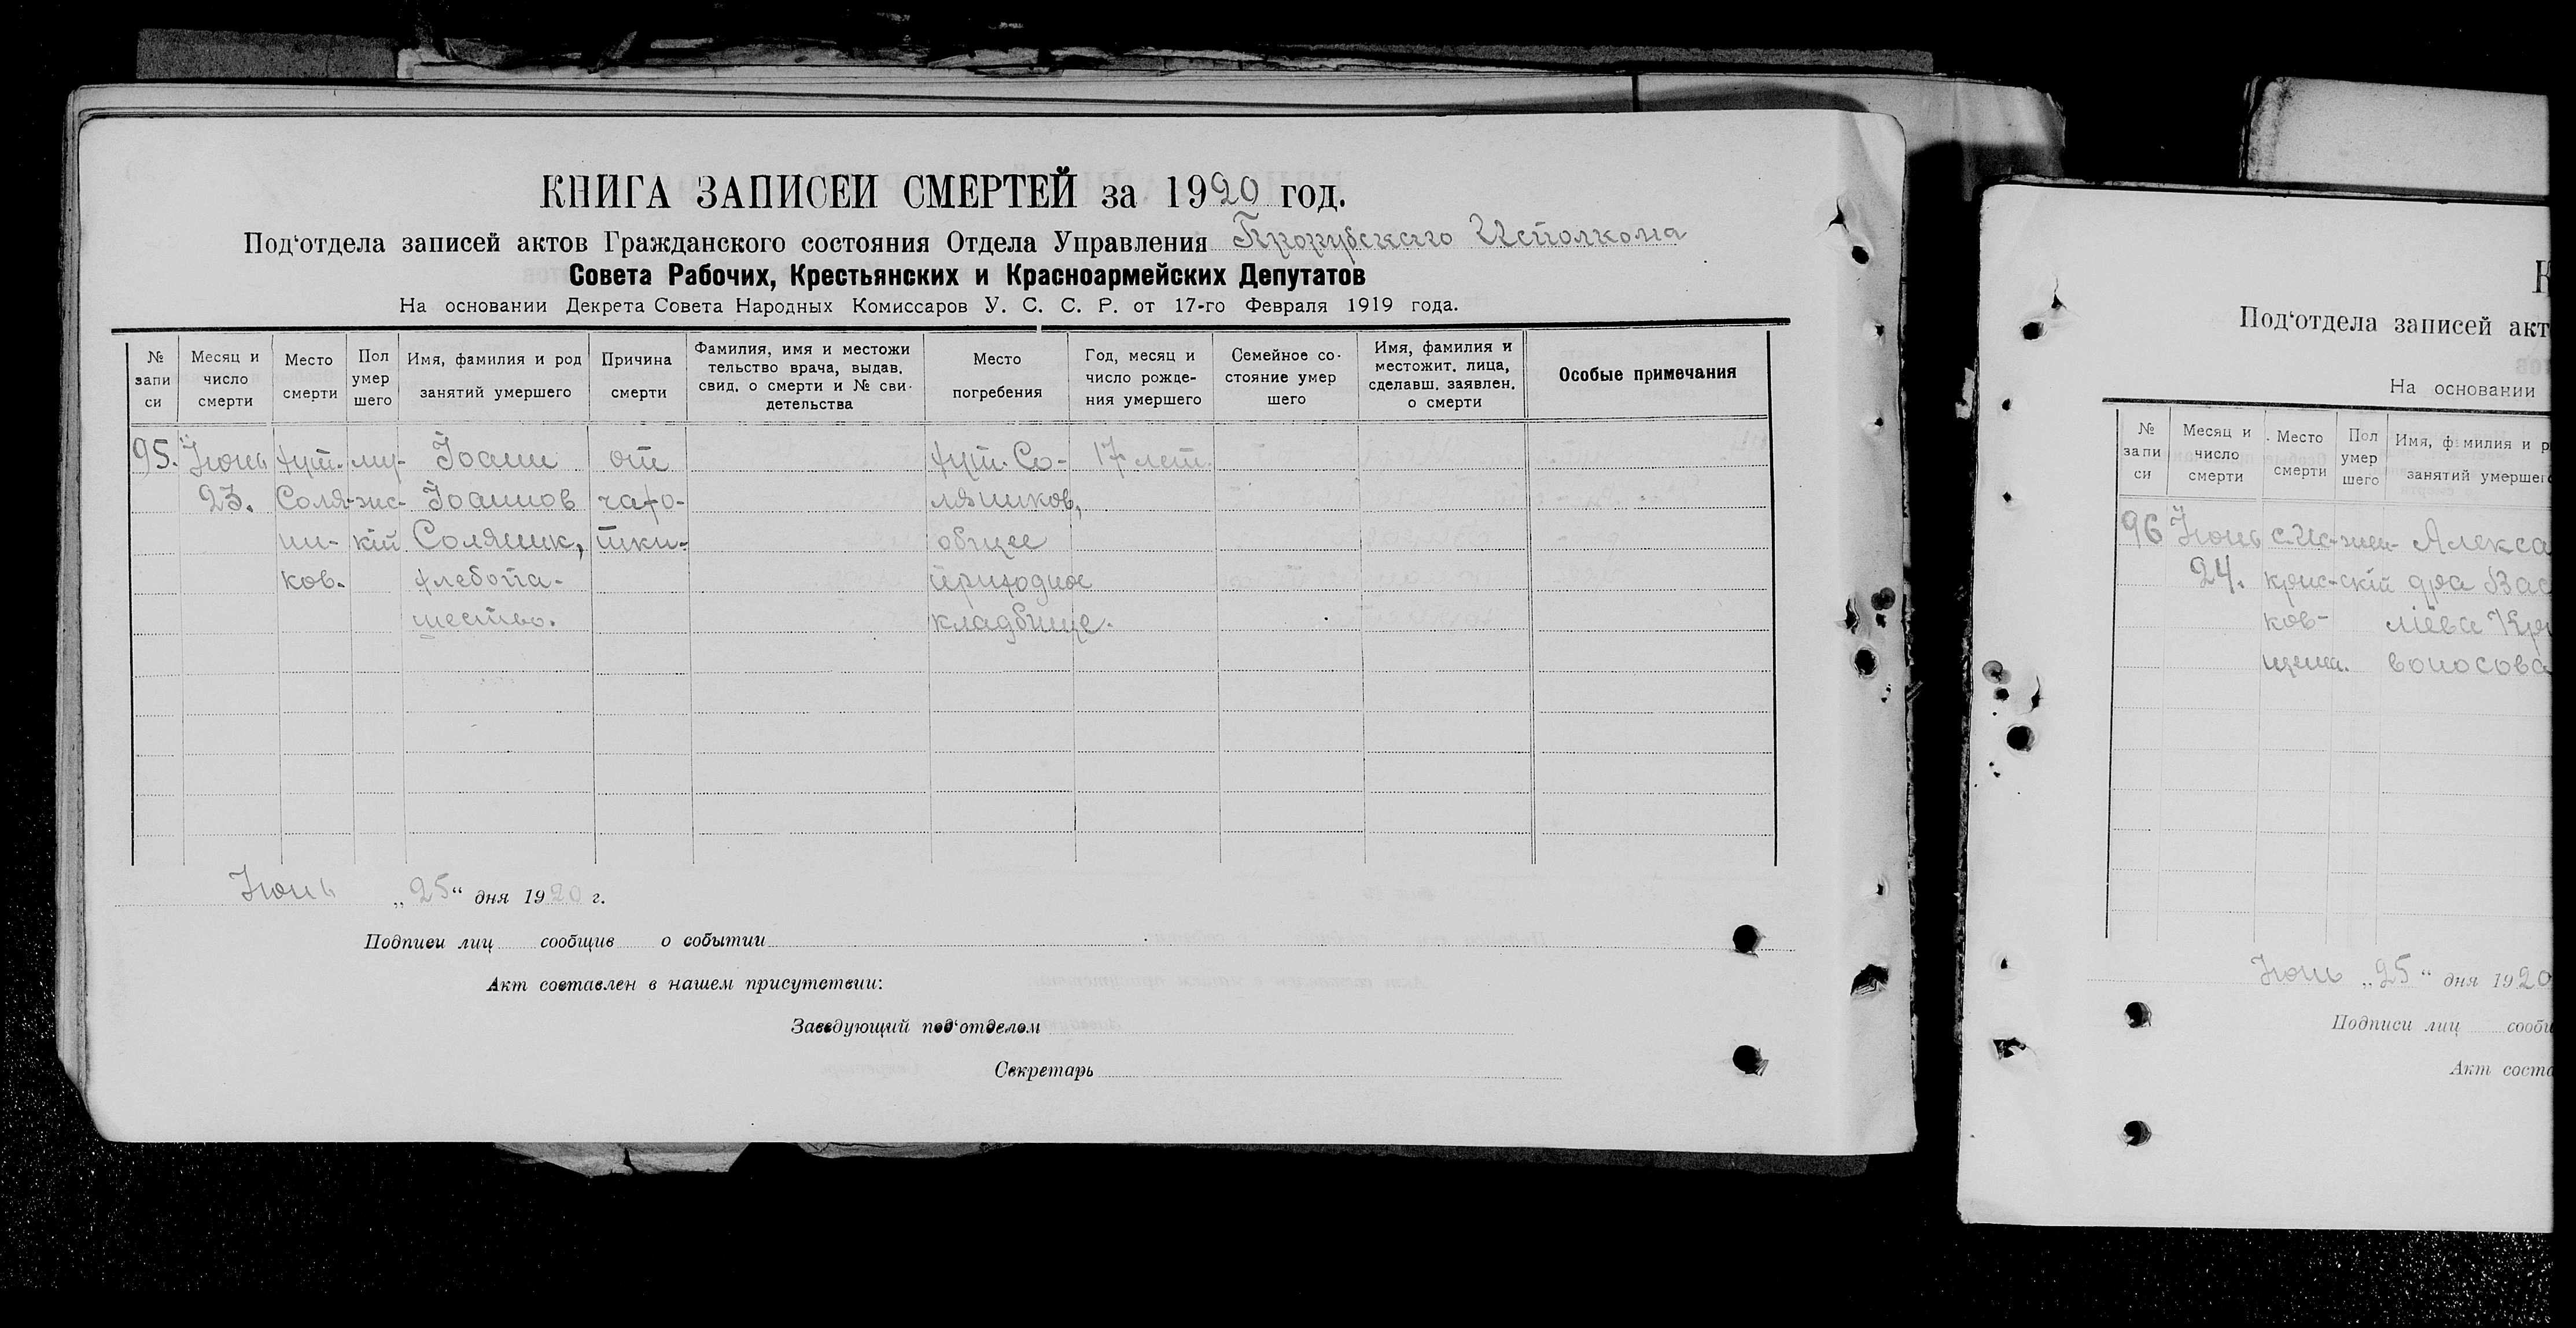 КНИГА ЗАПИСЕЙ СМЕРТЕЙ за 1920 год.
Под‘отдела записей актов Гражданского состояния Отдела Управления Исполкома
Совета Рабочих, Крестьянских и Красноармейских Депутатов
На основании Декрета Совета Народных Комиссаров У. С. С. Р. от 17-го Февраля 1919 года.
№ запи си
Месяц и число смерти
Место смерти
Пол умер шего
Имя, фамилия и род занятий умершего
Причина смерти
Фамилия, имя и местожи тельство врача, выдав. свид. о смерти и № сви- детельства
Место погребения
Год, месяц и число рожде- ния умершего
Семейное со- стояние умер шего
Имя, фамилия и местожит. лица, сделавш. заявлен. о смерти
Особые примечания
95. Июнь хут. му- Іоанн от хут. Со- 17 лет.
23. Соля- жс- Іоаннов чахо- ляников,
ни- кій Соляник, тки- общее
ков. хлебопа- приходное
шество. кладбище.
Июнь „25“ дня 1920 г.
Подписи лиц сообщив о событии
Акт составлен в нашем присутствии:
Заведующий под‘отделом
Секретарь
К
Под‘отдела записей акт
На основании
№ запи си
Месяц и число смерти
Место смерти
Пол умер шего
Имя, фамилия и р занятий умершего
96 Июнь с. Ис- жен- Алекса
24. крис- скій дра Вас
ков- ліева Кри
щена. воносова
Июнь „25“ дня 1920
Подписи лиц сообщ
Акт соста